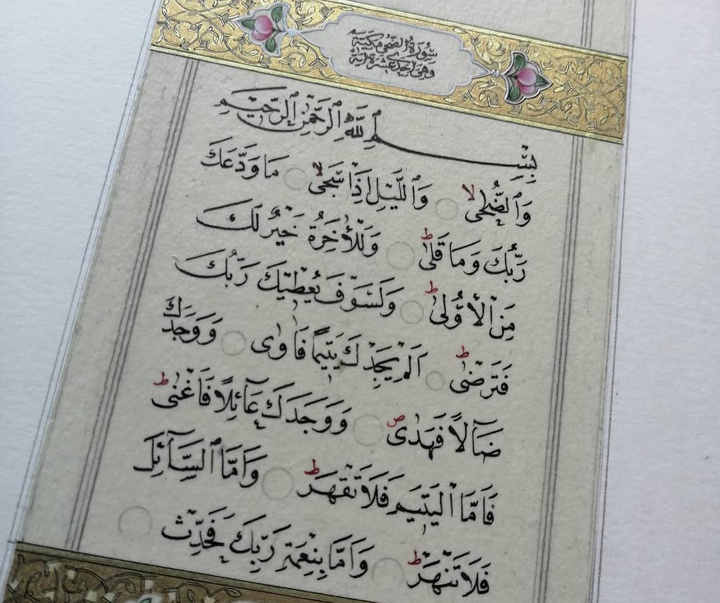 سُورَةُ الضُّحٰى مَكِّيَّةٌ
وَهِيَ اِحْدٰى عَشْرَةَ اٰيَةً
بِسْمِ ٱللّٰهِ ٱلرَّحْمٰنِ ٱلرَّحِيمِ
وَٱلضُّحٰىۙ وَٱلَّيْلِ اِذَا سَجٰىۙ مَا وَدَّعَكَ
رَبُّكَ وَمَا قَلٰىؕ وَلَلْاٰخِرَةُ خَيْرٌ لَكَ
مِنَ الْاُو۫لٰىؕ وَلَسَوْفَ يُعْطٖيكَ رَبُّكَ
فَتَرْضٰىؕ اَلَمْ يَجِدْكَ يَتٖيمًا فَاٰوٰى وَوَجَدَكَ
ضَٓالًّا فَهَدٰىۖ وَوَجَدَكَ عَٓائِلًا فَاَغْنٰىؕ
فَاَمَّا الْيَتٖيمَ فَلَا تَقْهَرْؕ وَاَمَّا ٱلسَّٓائِلَ
فَلَا تَنْهَرْؕ وَاَمَّا بِنِعْمَةِ رَبِّكَ فَحَدِّثْ